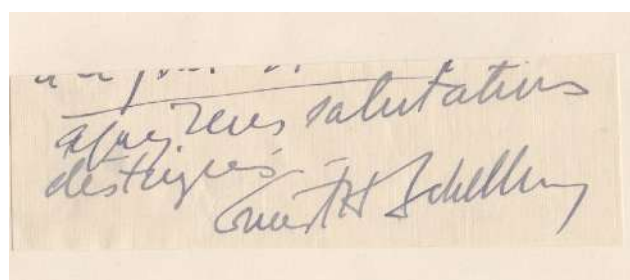 agreez mes salutations
destingués
Ernest H Schelling